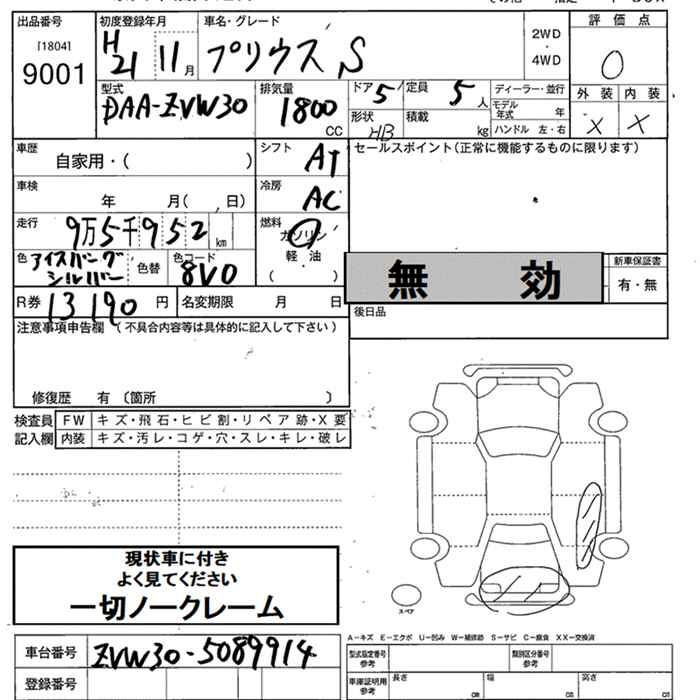 出品番号
[1804]
9001
初度登録年月
H21 11月
車名・グレード
プリウス S
2WD
・
4WD
評 価 点
0
外 装 内 装
× ×
型式
DAA-ZVW30
排気量
1800
CC
ドア 5
定員 5人
ディーラー・並行
モデル年式 年
形状 HB
積載 kg
ハンドル 左・右
車歴
自家用・( )
シフト AT
セールスポイント(正常に機能するものに限ります)
車検
年 月( . 日)
冷房 AC
走行
9万5千952 km
燃料
ガソリン
軽 油
( )
色 アイスバーグシルバー
色替
色コード
8V0
無 効
新車保証書
有・無
R券 13190 円
名変期限 月 日
後日品
注意事項申告欄 (不具合内容等は具体的に記入して下さい)
修復歴 有 〔箇所 〕
検査員 FW キズ・飛石・ヒビ割・リペア跡・X要
記入欄 内装 キズ・汚レ・コゲ・穴・スレ・キレ・破レ
現状車に付き
よく見てください
一切ノークレーム
スペア
A－キズ E－エクボ U－凹み W－補修跡 S－サビ C－腐食 XX－交換済
車台番号 ZVW30-5089914
型式指定番号
参考
類別区分番号
参考
登録番号
車庫証明用
参考
長さ cm
幅 cm
高さ cm